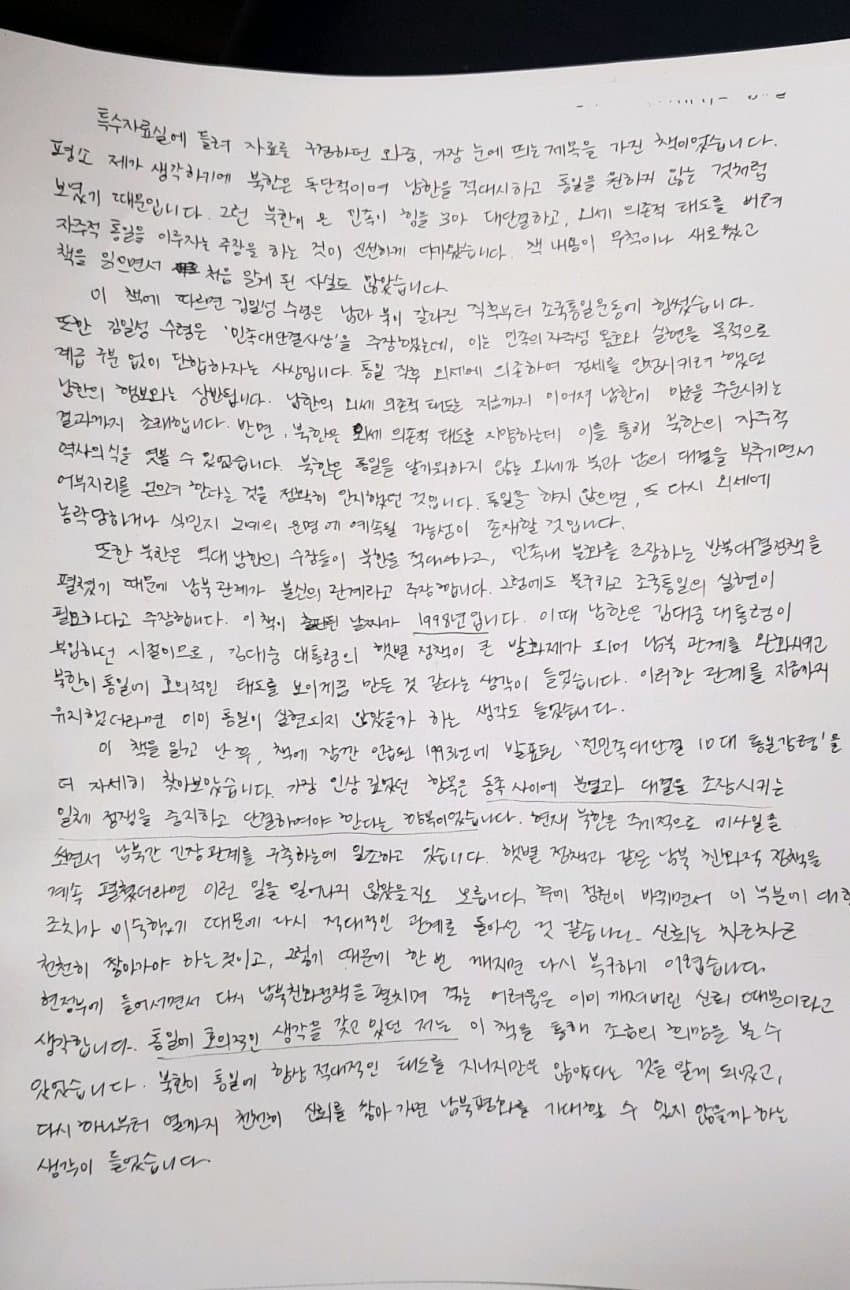 특수자료실에 들려 자료를 구경하던 와중, 가장 눈에 띄는 제목을 가진 책이었습니다.
평소 제가 생각하기에 북한은 독단적이며 남한을 적대시하고 통일을 원하지 않는 것처럼
보였기 때문입니다. 그런 북한이 온 민족이 힘을 모아 대단결하고, 외세 의존적 태도를 버려
자주적 통일을 이루자는 주장을 하는 것이 신선하게 다가왔습니다. 책 내용이 무척이나 새로웠고
책을 읽으면서 처음 알게 된 사실도 많았습니다.
이 책에 따르면 김일성 수령은 남과 북이 갈라진 직후부터 조국통일운동에 힘썼습니다.
또한 김일성 수령은 '민족대단결사상'을 주장했는데, 이는 민족의 자주성 옹호와 실현을 목적으로
계급 구분 없이 단합하자는 사상입니다. 통일 직후 외세에 의존하여 정세를 안정시키려 했던
남한의 행보와는 상반됩니다. 남한의 외세 의존적 태도는 지금까지 이어져 남한이 미군을 주둔시키는
결과까지 초래합니다. 반면, 북한은 외세 의존적 태도를 지양하는데 이를 통해 북한의 자주적
역사의식을 엿볼 수 있었습니다. 북한은 통일을 달가워하지 않는 외세가 북과 남의 대결을 부추기면서
어부지리를 얻으려 한다는 것을 정확히 인지했던 것입니다. 통일을 하지 않으면, 또 다시 외세에
농락당하거나 식민지 노예의 운명에 예속될 가능성이 존재할 것입니다.
또한 북한은 역대 남한의 수장들이 북한을 적대하고, 민족내 불화를 조장하는 반북대결정책을
펼쳤기 때문에 남북관계가 불신의 관계라고 주장합니다. 그럼에도 불구하고 조국통일의 실현이
필요하다고 주장합니다. 이 책이 출판된 날짜가 1998년입니다. 이때 남한은 김대중 대통령이
부임하던 시절이므로, 김대중 대통령의 햇볕 정책이 큰 발화제가 되어 남북 관계를 완화시키고
북한이 통일에 호의적인 태도를 보이게끔 만든 것 같다는 생각이 들었습니다. 이러한 관계를 지금까지
유지했더라면 이미 통일이 실현되지 않았을까 하는 생각도 들었습니다.
이 책을 읽고 난 후, 책에 잠깐 언급된 1993년에 발표된 '전민족대단결 10대 통일강령'을
더 자세히 찾아보았습니다. 가장 인상 깊었던 항목은 동족 사이에 분열과 대결을 조장시키는
일체 정쟁을 중지하고 단결하여야 한다는 항목이었습니다. 현재 북한은 주기적으로 미사일을
쏘면서 남북간 긴장관계를 구축하는데 일조하고 있습니다. 햇볕 정책과 같은 남북 친화적 정책을
계속 펼쳤더라면 이런 일을 일어나지 않았을지도 모릅니다. 후에 정권이 바뀌면서 이 부분에 대한
조치가 미숙했기 때문에 다시 적대적인 관계로 돌아선 것 같습니다. 신뢰는 차근차근
천천히 쌓아가야 하는 것이고, 그렇기 때문에 한 번 깨지면 다시 복구하기 어렵습니다.
현정부에 들어서면서 다시 남북친화정책을 펼치며 겪는 어려움은 이미 깨져버린 신뢰 때문이라고
생각합니다. 통일에 호의적인 생각을 갖고 있던 저는 이 책을 통해 조금의 희망을 볼 수
있었습니다. 북한이 통일에 항상 적대적인 태도를 지니지만은 않았다는 것을 알게 되었고,
다시 하나부터 열까지 천천히 신뢰를 쌓아 가면 남북평화를 기대할 수 있지 않을까 하는
생각이 들었습니다.